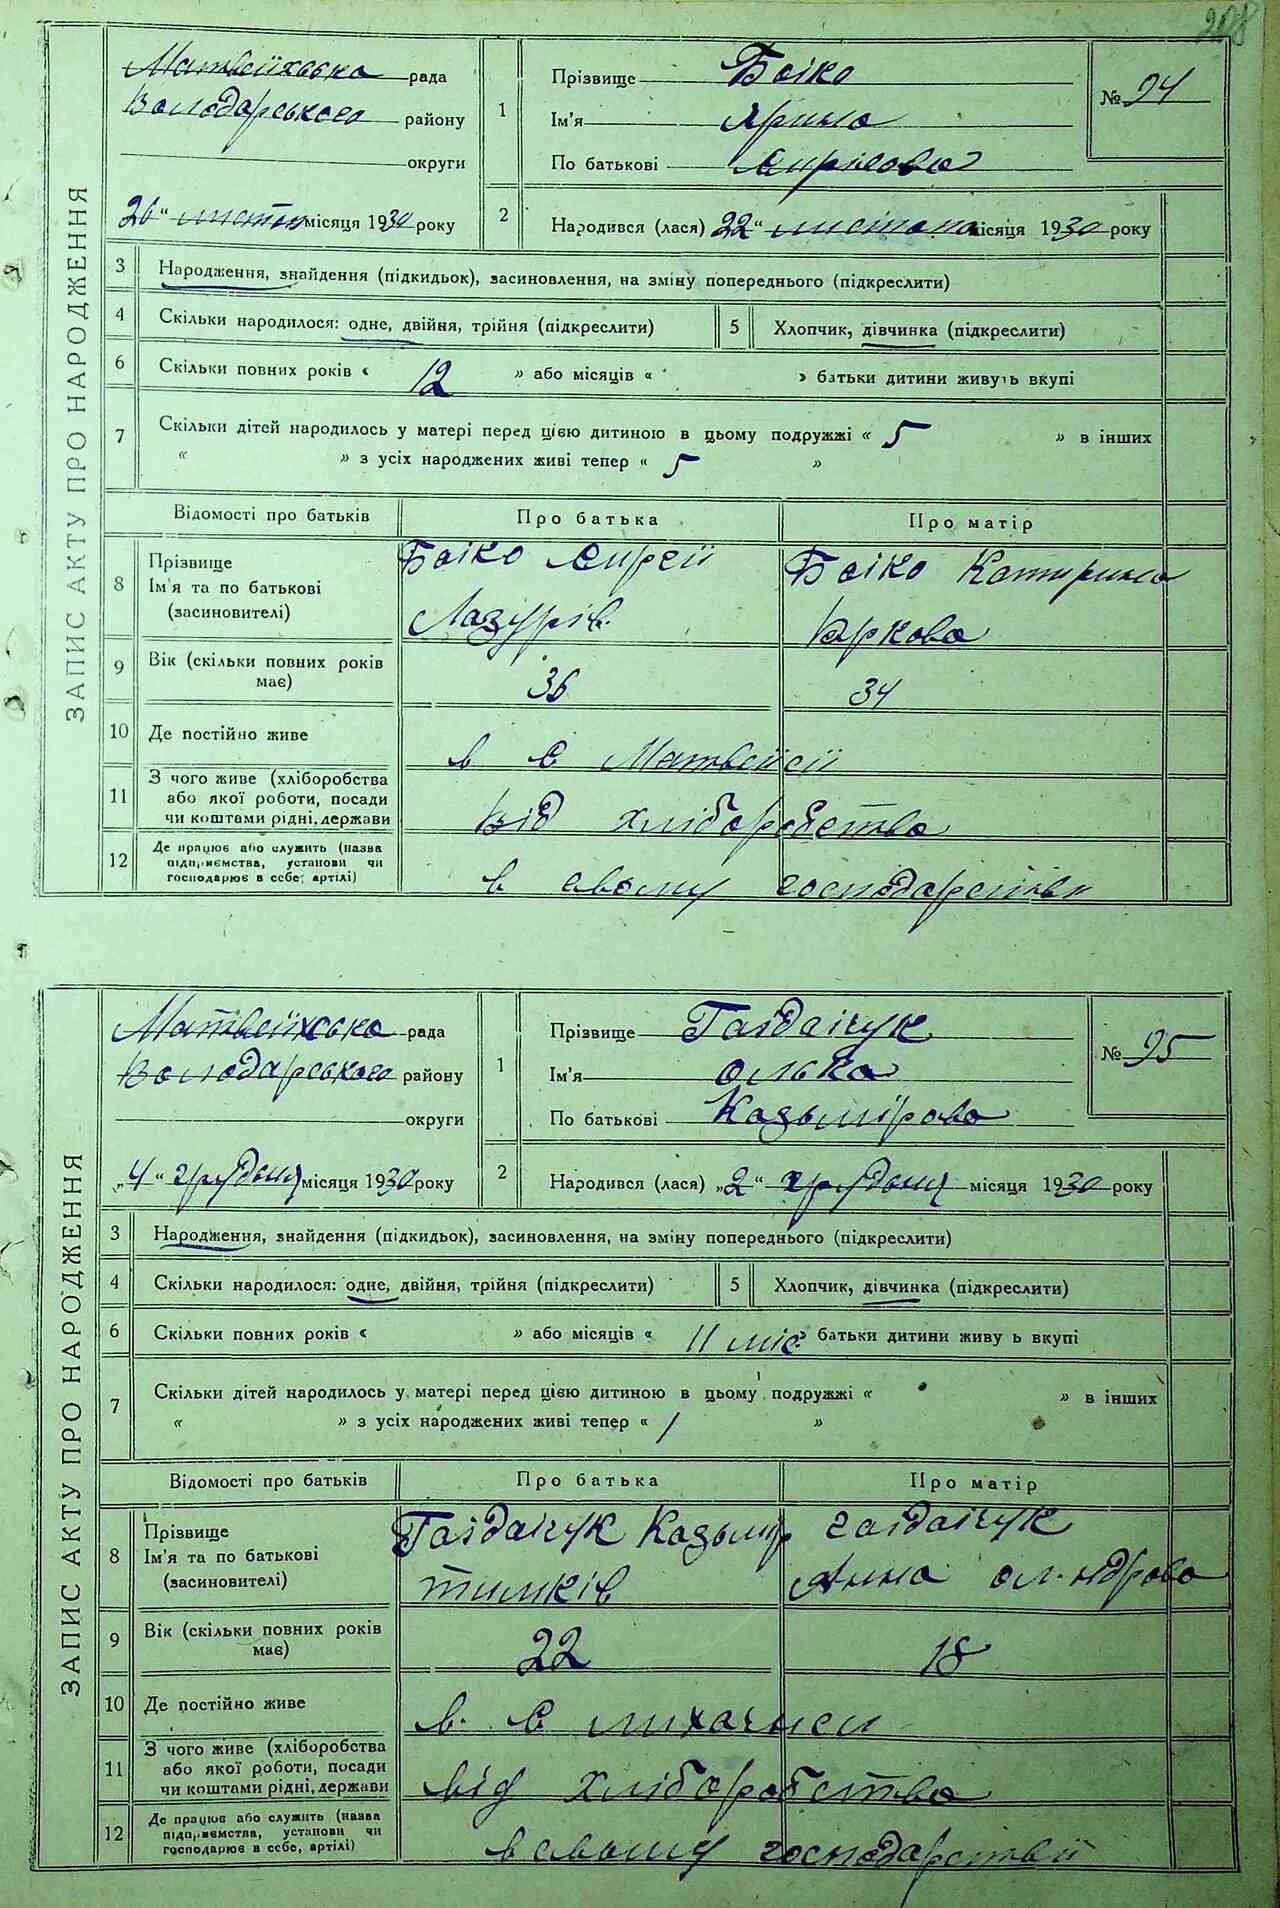 208
ЗАПИС АКТУ ПРО НАРОДЖЕННЯ
Матвеїхська рада
Володарського району
округи
1
Прізвище Боіко
Ім'я Ярина
По батькові
№ 94
26 " листоп місяця 1930 року
2
Народився (лася) 22 " листопа місяця 1930 року
3 Народження, знайдення (підкидьок), засиновлення, на зміну попереднього (підкреслити)
4 Скільки народилося: одне, двійня, трійня (підкреслити) 5 Хлопчик, дівчинка (підкреслити)
6 Скільки повних років « 12 » або місяців « » батьки дитини живуть вкупі
7 Скільки дітей народилось у матері перед цією дитиною в цьому подружжі « 5 » в інших
« » з усіх народжених живі тепер « 5 »
Відомості про батьків Про батька Про матір
8 Прізвище Ім'я та по батькові (засиновителі)
Боіко Боіко Катирина
Лазурів. Юркова
9 Вік (скільки повних років має) 36 34
10 Де постійно живе в с
11 З чого живе (хліборобства або якої роботи, посади чи коштами рідні, держави від хліборобства
12 Де працює або служить (назва підприємства, установи чи господарює в себе, артілі) в свому
ЗАПИС АКТУ ПРО НАРОДЖЕННЯ
Матвеїхська рада
Володарського району
округи
1
Прізвище Гаідаічук
Ім'я Олька
По батькові Казьмірова
№ 95
„4" грудьня місяця 1930 року
2
Народився (лася) „2" грудьня місяця 1930 року
3 Народження, знайдення (підкидьок), засиновлення, на зміну попереднього (підкреслити)
4 Скільки народилося: одне, двійня, трійня (підкреслити) 5 Хлопчик, дівчинка (підкреслити)
6 Скільки повних років « » або місяців « 11 міс. » батьки дитини живу ь вкупі
7 Скільки дітей народилось у матері перед цією дитиною в цьому подружжі « » в інших
« » з усіх народжених живі тепер « 1 »
Відомості про батьків Про батька Про матір
8 Прізвище Ім'я та по батькові (засиновителі)
Гаідаічук Казьмір гаідаічук
тимків Анна
9 Вік (скільки повних років має) 22 18
10 Де постійно живе в. с
11 З чого живе (хліборобства або якої роботи, посади чи коштами рідні, держави від хліборобства
12 Де працює або служить (назва підприємства, установи чи господарює в себе, артілі) в свому господарстві